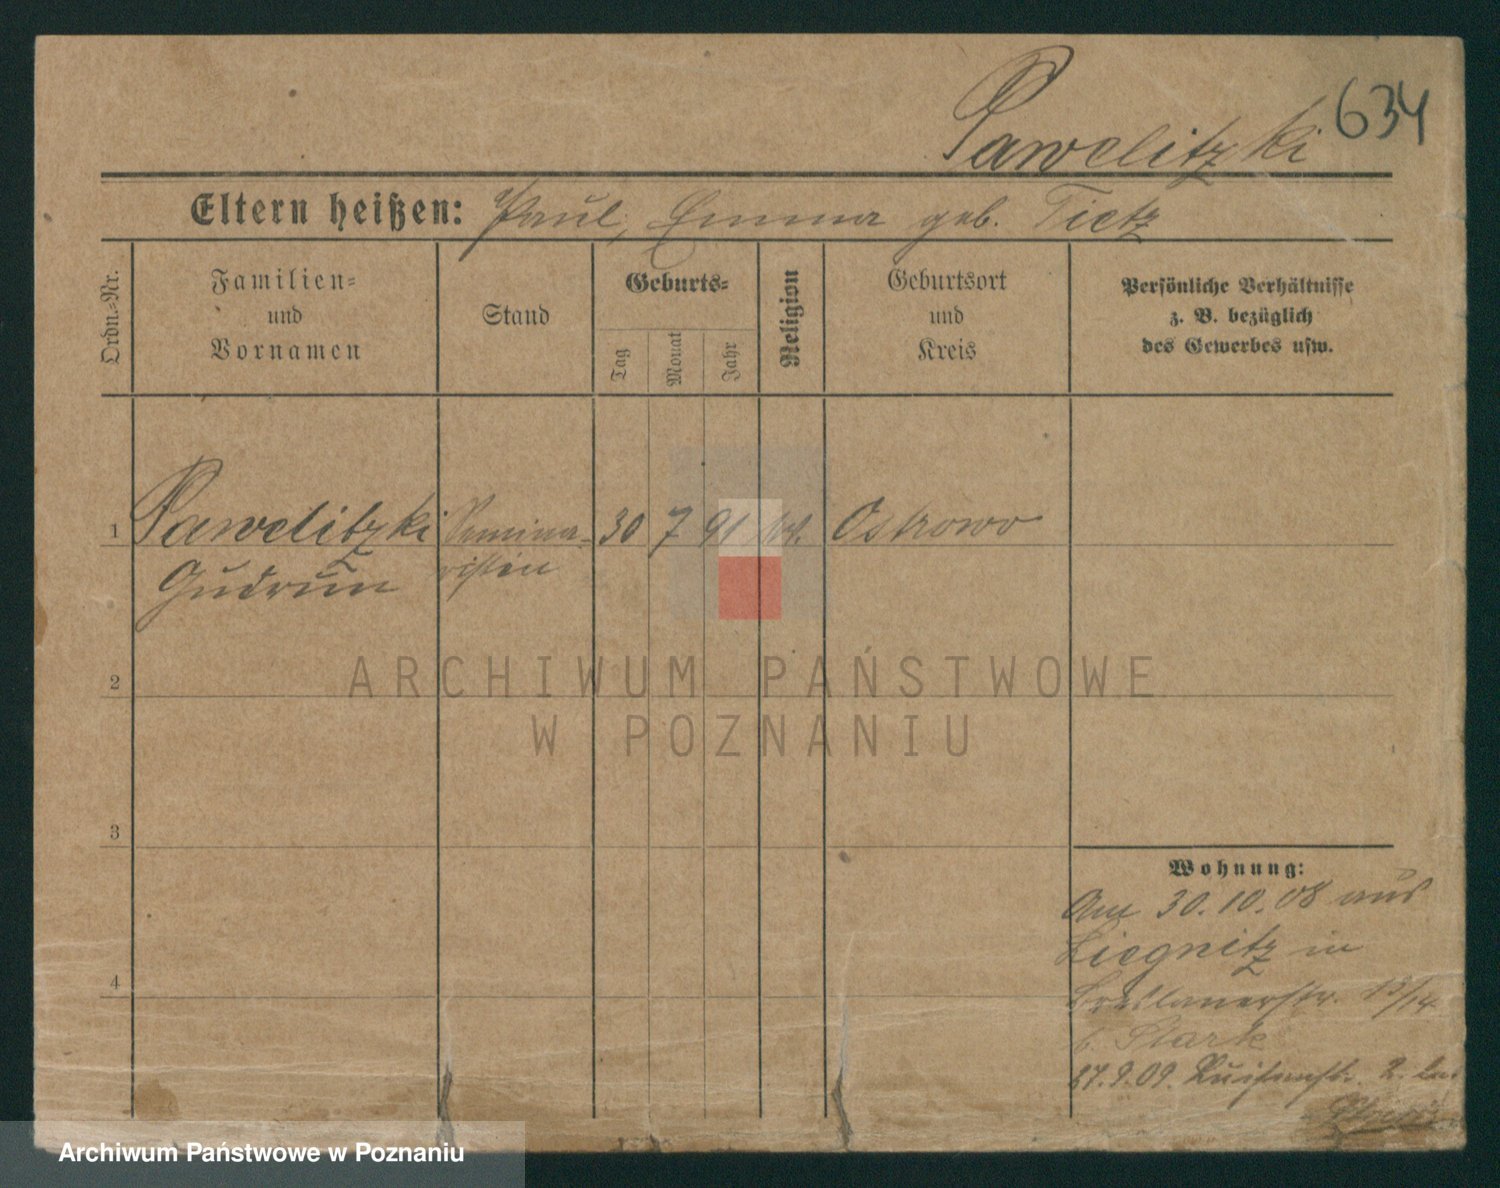 Pawelitzki 634
Eltern heißen: Paul, Emma geb. Tietz
Ordn.-Nr.
Familien- und Vornamen
Stand
Geburts-
Tag
Monat
Jahr
Religion
Geburtsort und Kreis
Persönliche Verhältnisse
z. B. bezüglich
des Gewerbes usw.
1 Pawelitzki Semina- 30 7 91 Ostrowo
Gudrun ristin
2
3
4
Wohnung:
Am 30.10.08 aus
Liegnitz in
Breslauerstr. 13/14
b. Stark
27.9.09. Luisenstr. 2.
ARCHIWUM PAŃSTWOWE
W POZNANIU
Archiwum Państwowe w Poznaniu